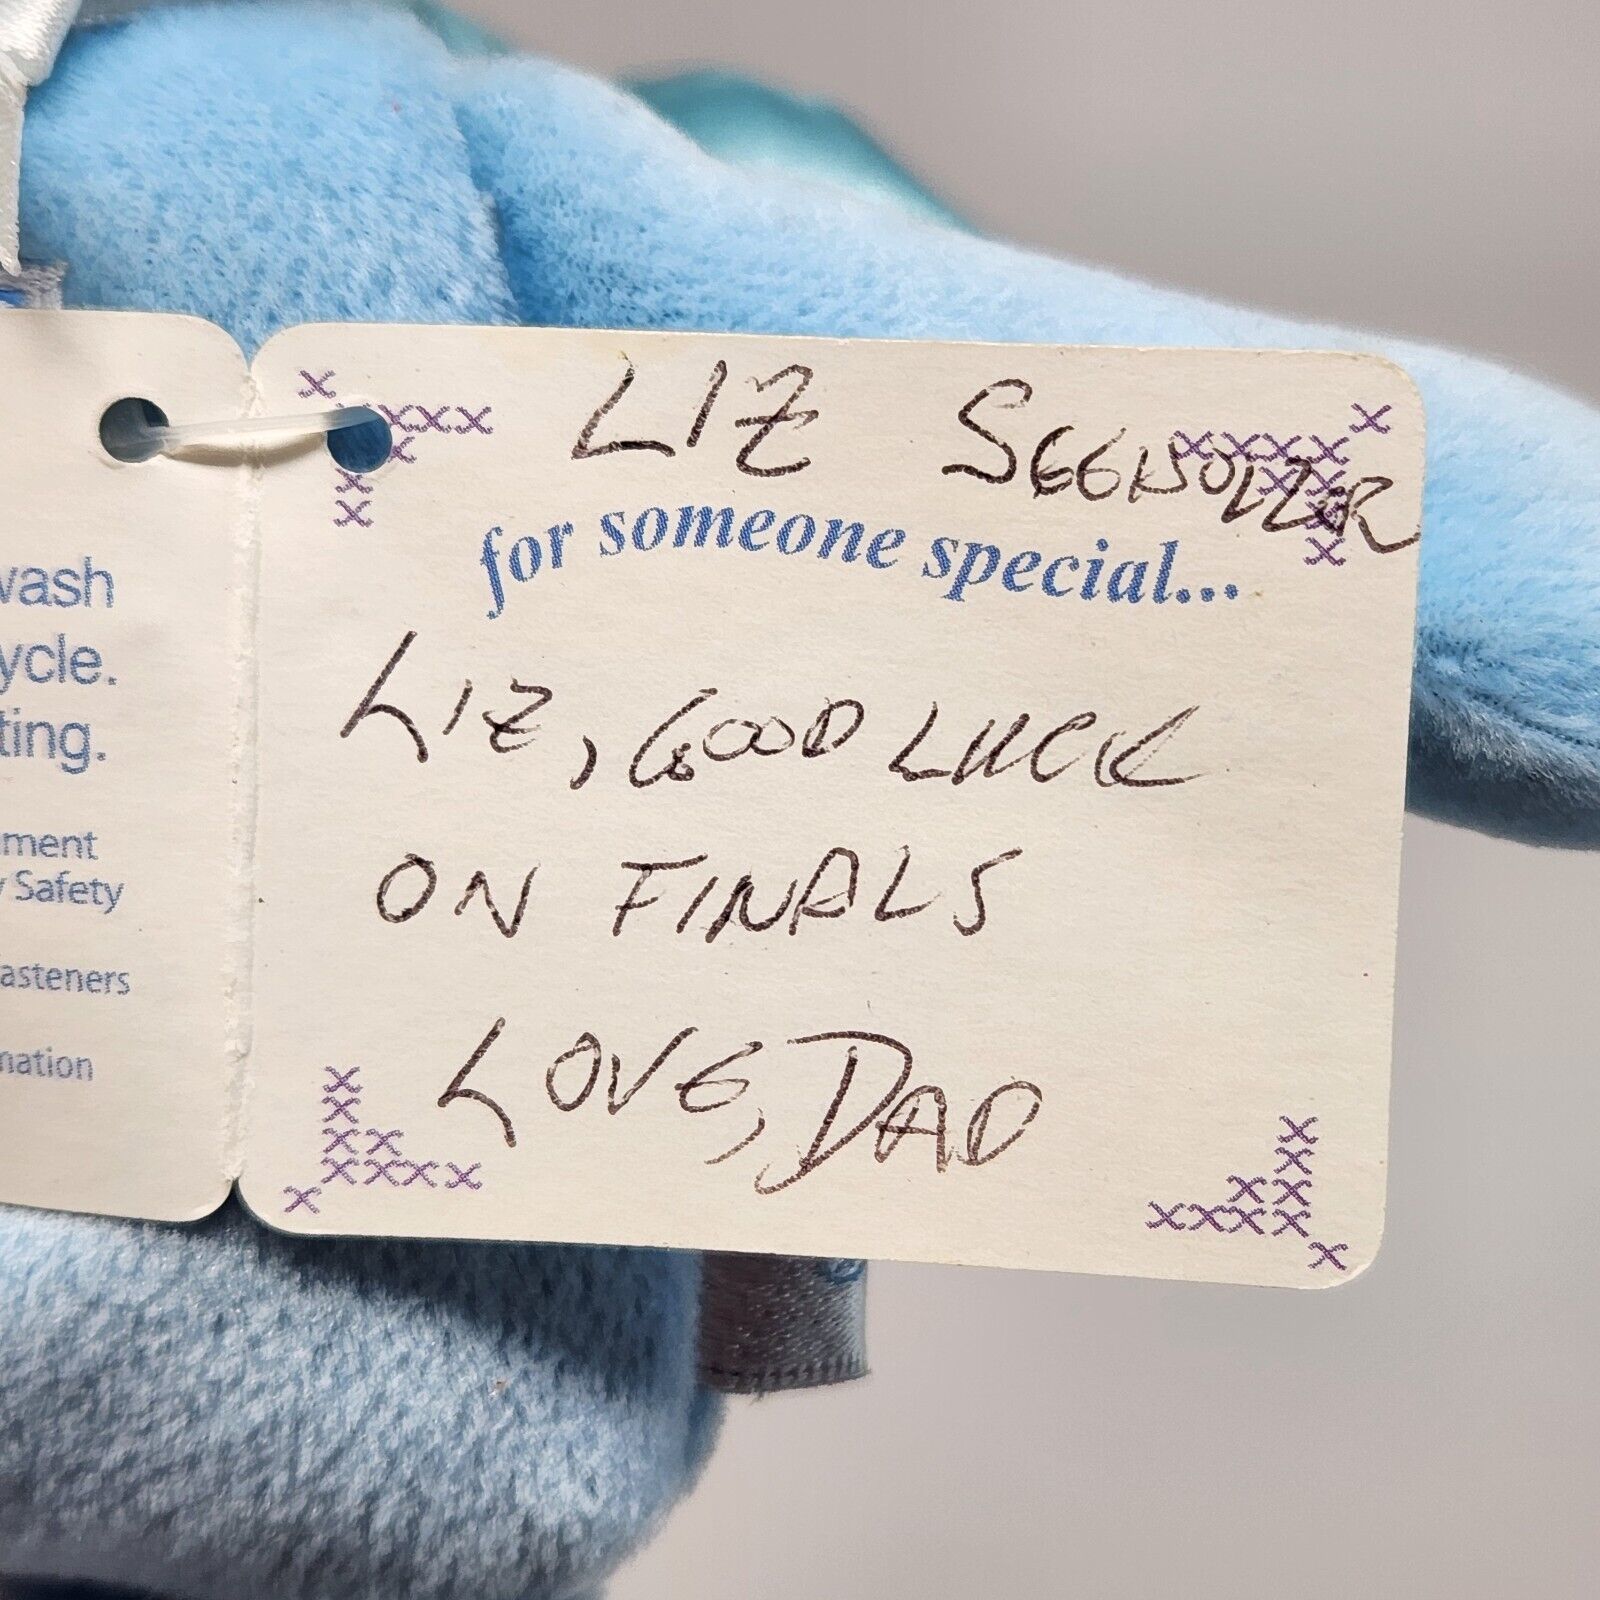 LIZ SEEHOLZER
for someone special...
LIZ, GOOD LUCK
ON FINALS
LOVE, DAD
wash
ycle.
ting.
ment
y Safety
asteners
mation